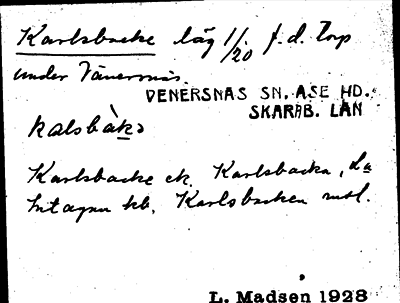 Karlsbacke låg 1/20 f.d. Torp
under Vänernäs.
VENERSNAS SN. ASE HD.
SKARAB. LAN
kalsbàkə
Karlsbacke ek. Karlsbacka, La
kb. Karlsbacken
L. Madsen 1928